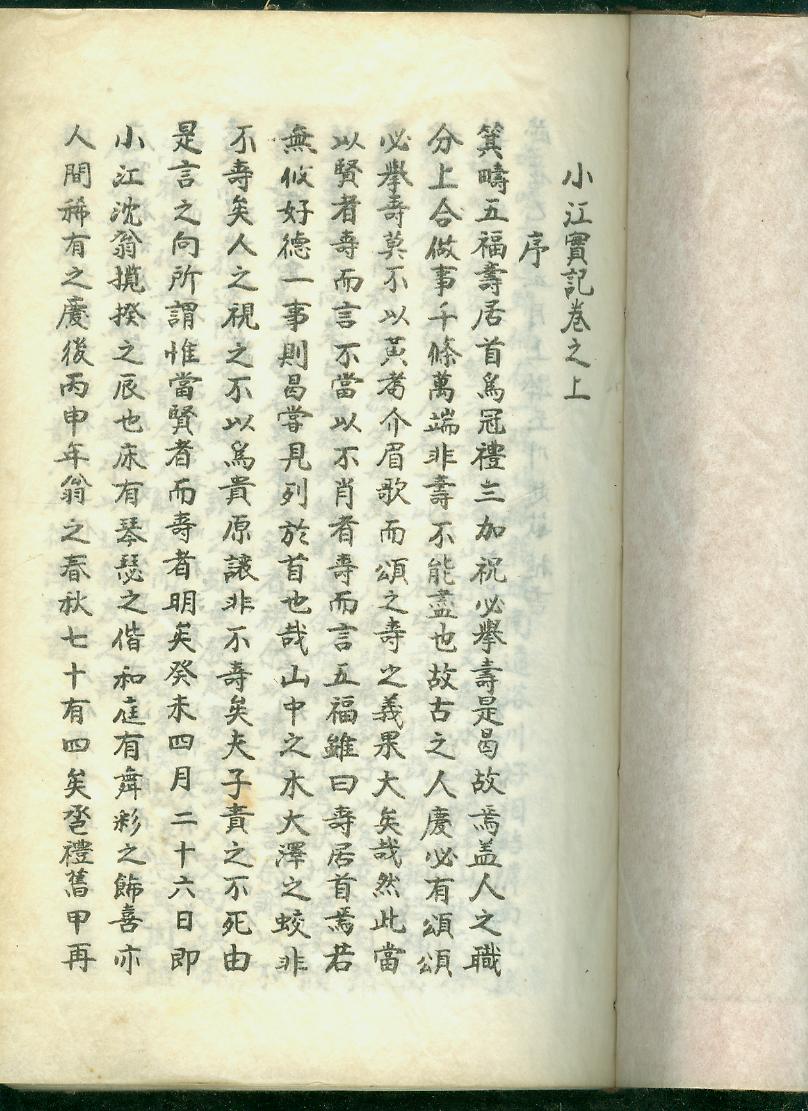 小江實記卷之上
序
箕疇五福壽居首爲冠禮三加祝必擧壽是曷故焉盖人之職
分上合做事千條萬端非壽不能盡也故古之人慶必有頌頌
必擧壽莫不以黃耉介眉歌而頌之壽之義果大矣哉然此當
以賢者壽而言不當以不肖者壽而言五福雖曰壽居首焉若
無攸好德一事則曷嘗見列於首也哉山中之木大澤之蛟非
不壽矣人之視之不以爲貴原讓非不壽矣夫子責之不死由
是言之向所謂惟當賢者而壽者明矣癸未四月二十六日即
小江沈翁攬揆之辰也床有琴瑟之偕和庭有舞彩之飾喜亦
人間稀有之慶後丙申年翁之春秋七十有四矣巹禮舊甲再